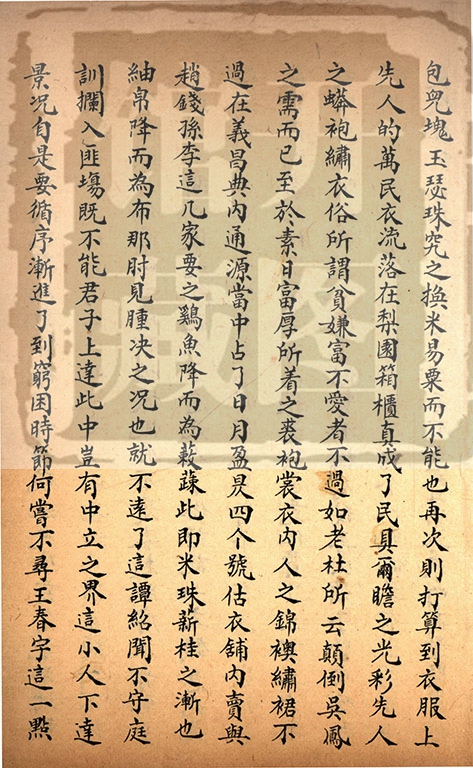 包兕塊玉瑟珠究之換米易粟而不能也再次則打算到衣服上
先人的萬民衣流落在梨園箱櫃真成了民具爾瞻之光彩先人
之蟒袍繡衣俗所謂貧嫌富不愛者不過如老杜所云顛倒吳鳳
之需而已至於素日富厚所着之裘袍裳衣內人之錦襖繡裙不
過在義昌典內通源當中占了日月盈昃四个號估衣舖內賣與
趙錢孫李這几家要之鷄魚降而為蔌蔬此即米珠薪桂之漸也
紬帛降而為布那时見腫决之况也就不遠了這譚紹聞不守庭
訓攔入匪塲既不能君子上達此中豈有中立之界這小人下達
景况自是要循序漸進了到窮困時節何嘗不尋王春宇這一點